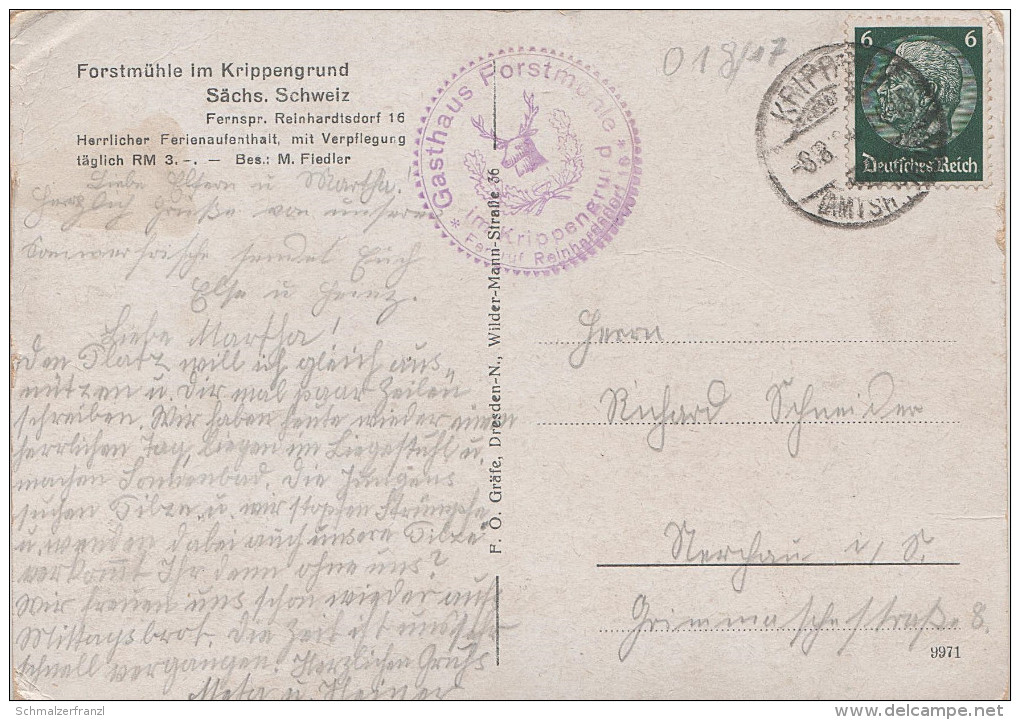 Forstmühle im Krippengrund
Sächs. Schweiz
Fernspr. Reinhardtsdorf 16
Herrlicher Ferienaufenthalt, mit Verpflegung
täglich RM 3.-. — Bes.: M. Fiedler
* Gasthaus Forstmühle *
im Krippengrund
Fernruf Reinhardtsdorf 16
6 6
Deutsches Reich
Liebe Eltern u Martha!
Herzlich Grüße von unserer
sendet Euch
Else u Heinz.
Liebe Martha!
Den Platz will ich gleich aus„
nutzen u. Dir mal paar Zeilen
schreiben. Wir haben heute wieder einen
herrlichen Tag, liegen im Liegestuhl u.
machen Sonnenbad. Die Jungens
suchen Pilze u. wir stopfen Strümpfe
u. werden dabei auch unsere Pilze
verkommt Ihr denn ohne uns?
Wir freuen uns schon wieder aufs
Mittagsbrot. Die Zeit ist uns sehr
schnell vergangen. Herzlichen Gruß
Meta u. Heiner
F. O. Gräfe, Dresden-N., Wilder-Mann-Straße 36
Herrn
Richard Schneider
Nerchau i/S.
Grimmaschestraße 8.
9971
Schmalzerfranzl
www.delcampe.net